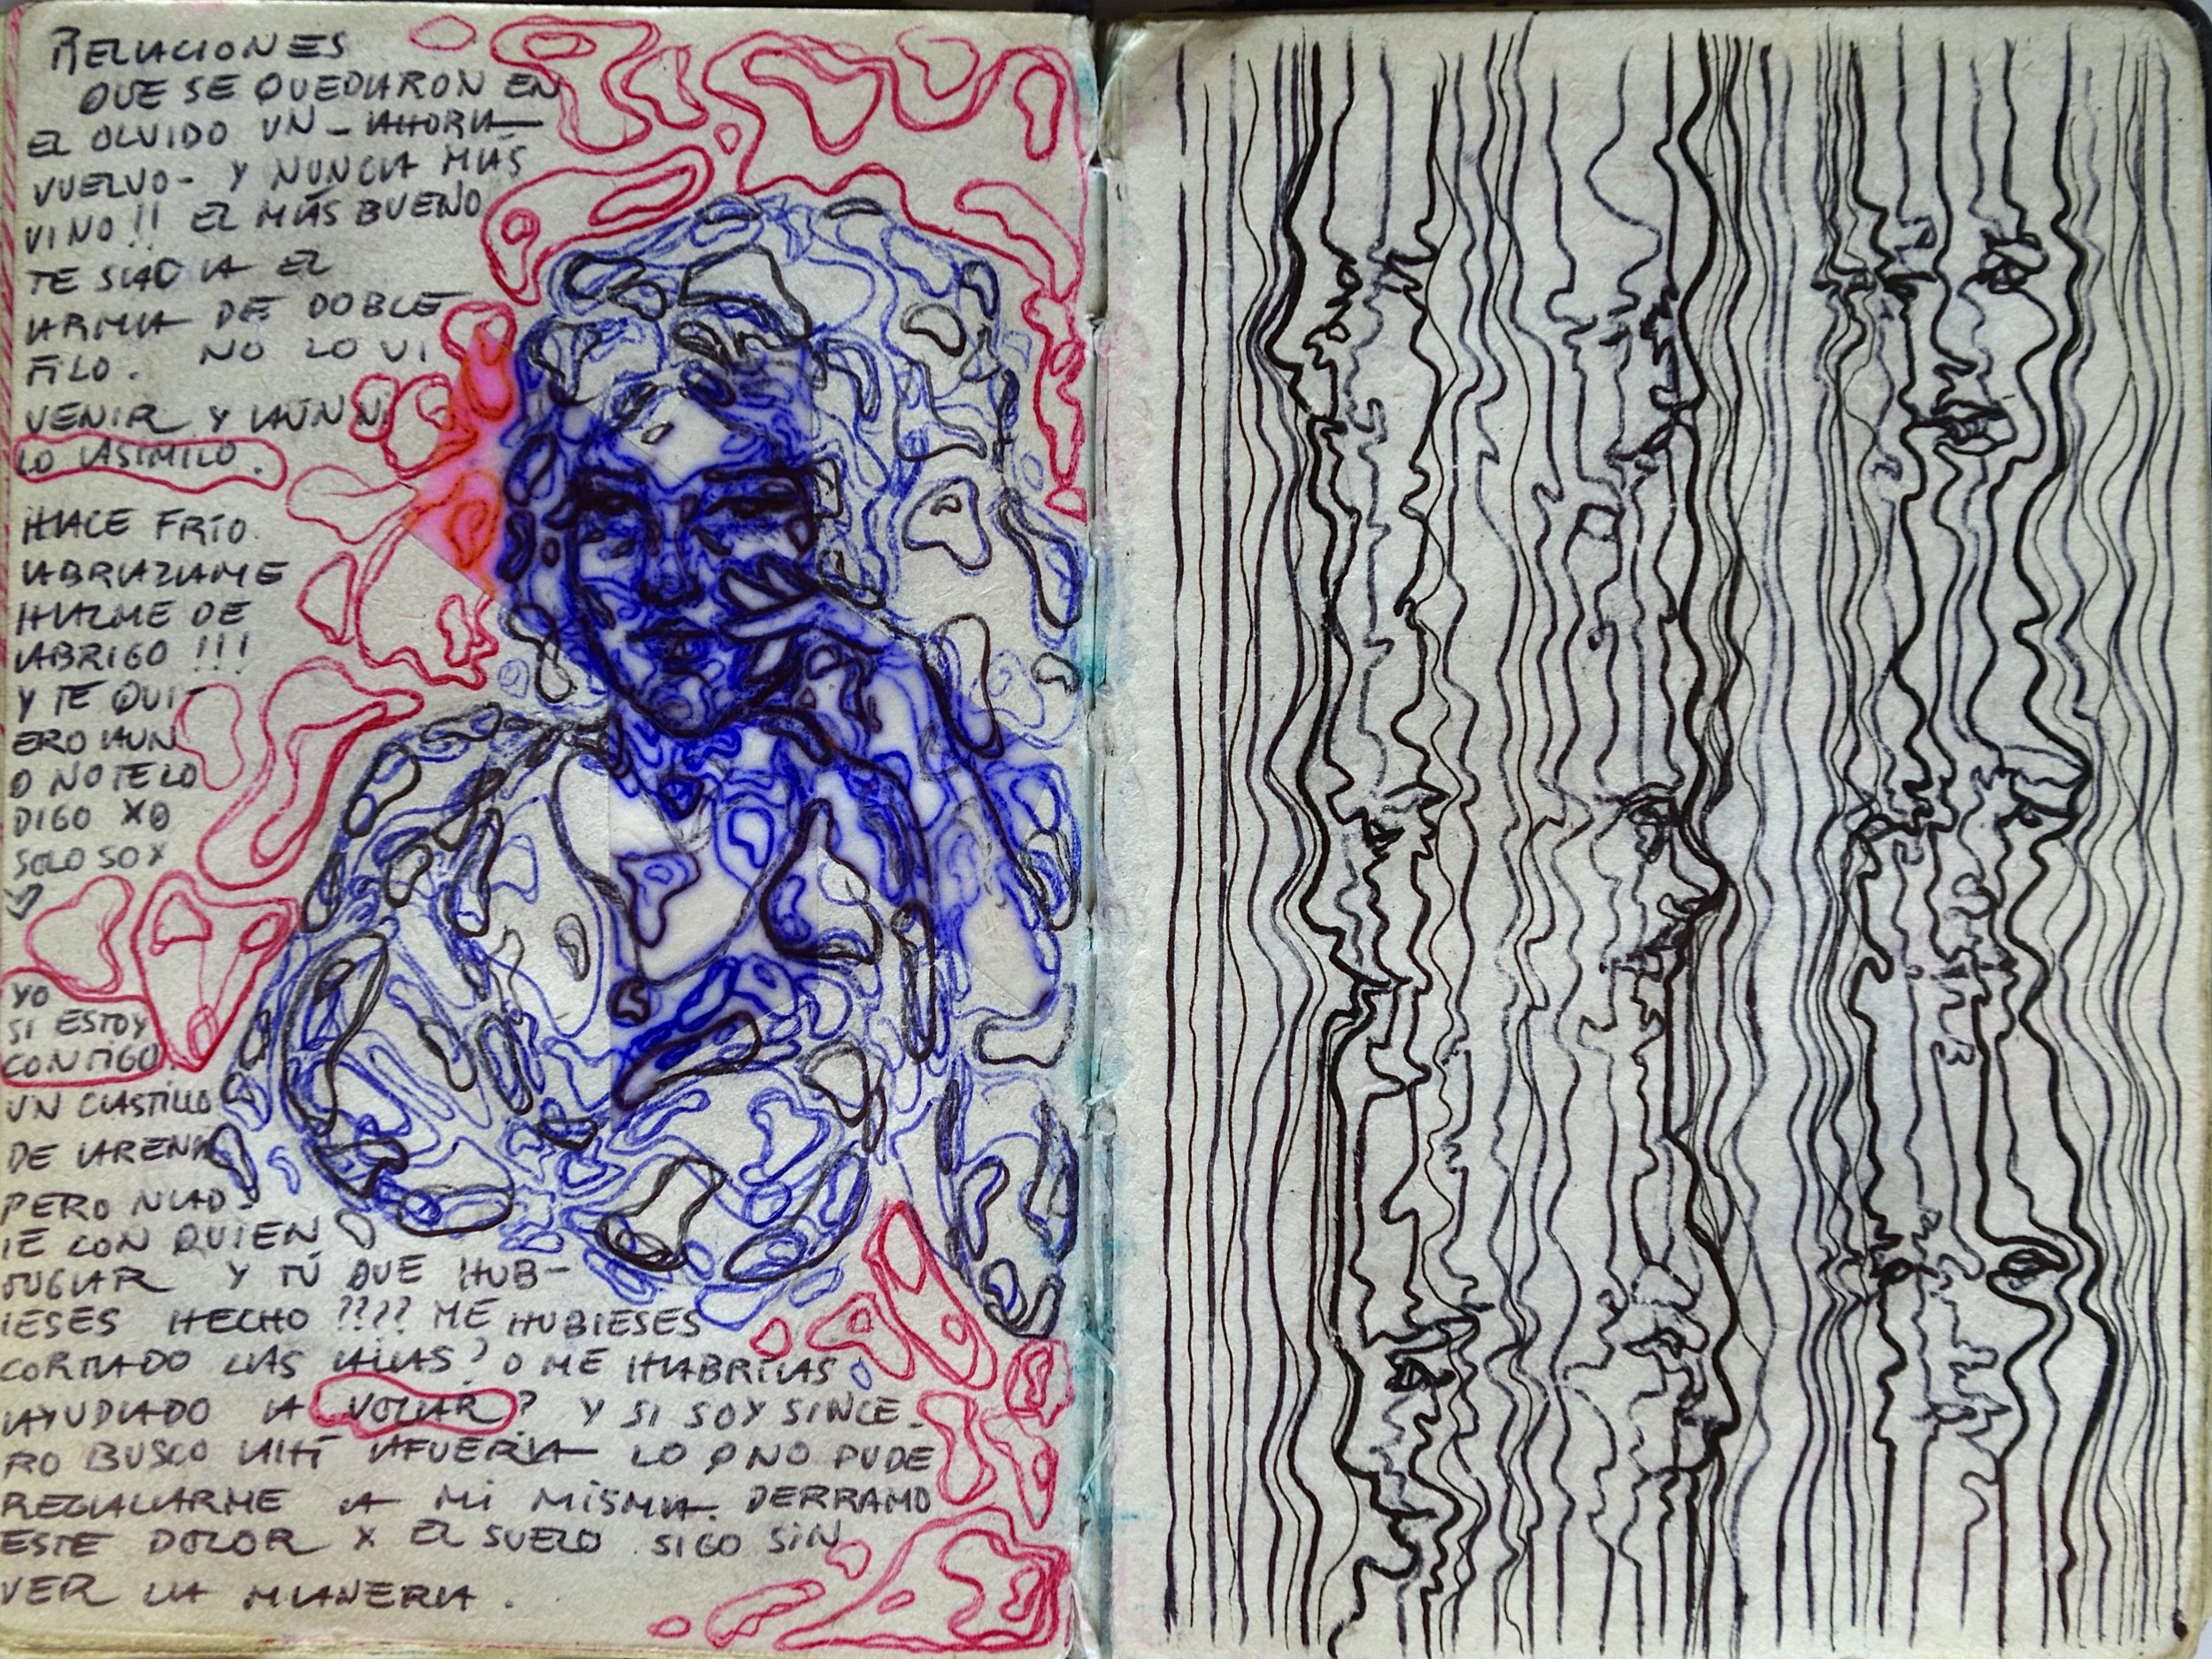 RELACIONES
QUE SE QUEDARON EN
EL OLVIDO UN - AHORA
VUELVO - Y NUNCA MÁS
VINO!! EL MÁS BUENO
TE SACA EL
ARMA DE DOBLE
FILO. NO LO VI
VENIR Y AÚN NI
LO ASIMILO.
HACE FRÍO.
ABRAZAME
HAZME DE
ABRIGO !!!
Y TE QUI-
ERO AUN
Q NO TE LO
DIGO XQ
SOLO SOY
YO
SI ESTOY
CONTIGO.
UN CASTILLO
DE ARENA
PERO NAD-
IE CON QUIEN
JUGAR Y TÚ QUE HUB-
IESES HECHO ???? ME HUBIESES
CORTADO LAS ALAS? O ME HABRÍAS
AYUDADO A VOLAR? Y SI SOY SINCE-
RO BUSCO AHÍ AFUERA LO Q NO PUDE
REGALARME A MI MISMA. DERRAMO
ESTE DOLOR X EL SUELO. SIGO SIN
VER LA MANERA.